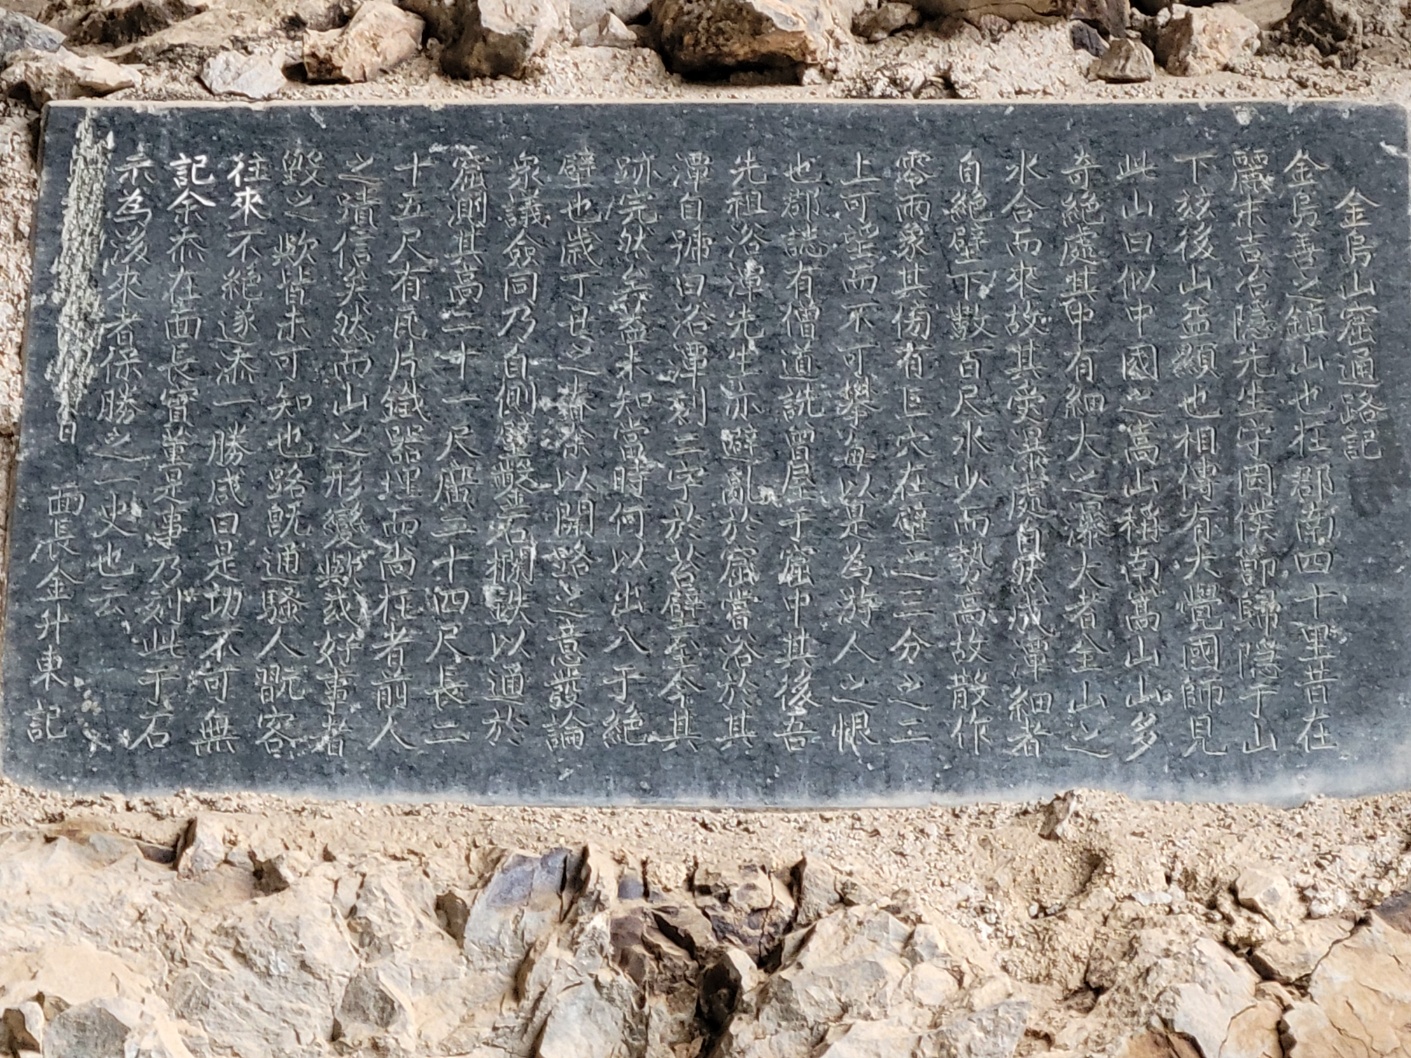 金烏山窟通路記
金烏善之鎮山也在郡南四十里昔在
麗末吉冶隱先生守罔僕節歸隱于山
下玆後山益顯也相傳有大覺國師見
此山曰似中國之嵩山稱南嵩山山多
奇絶處其中有細大之瀑大者全山之
水合而來故其受瀑處自然成潭細者
自絶壁下數百尺水少而勢高故散作
零雨象其傍有巨穴在壁之三分之二
上可望而不可攀每以是為游人之恨
也郡誌有僧道詵曾居于窟中其後吾
先祖浴潭先生亦避亂於窟嘗浴於其
潭自號曰浴潭刻三字於苔壁至今其
跡完然矣盖未知當時何以出入于絶
壁也歲丁丑之春余以開路之意發論
衆議僉同乃自側壁鑿石欄鉄以通於
窟測其高二十一尺廣二十四尺長二
十五尺有瓦片鐵器埋而尚在者前人
之蹟信矣然而山之形變歟或好事者
毀之歟皆未可知也路旣通騷人翫客
往來不絶遂添一勝咸曰是功不可無
記余忝在面長實董是事乃刻此于石
示為後來者保勝之一史也云
面長金升東記